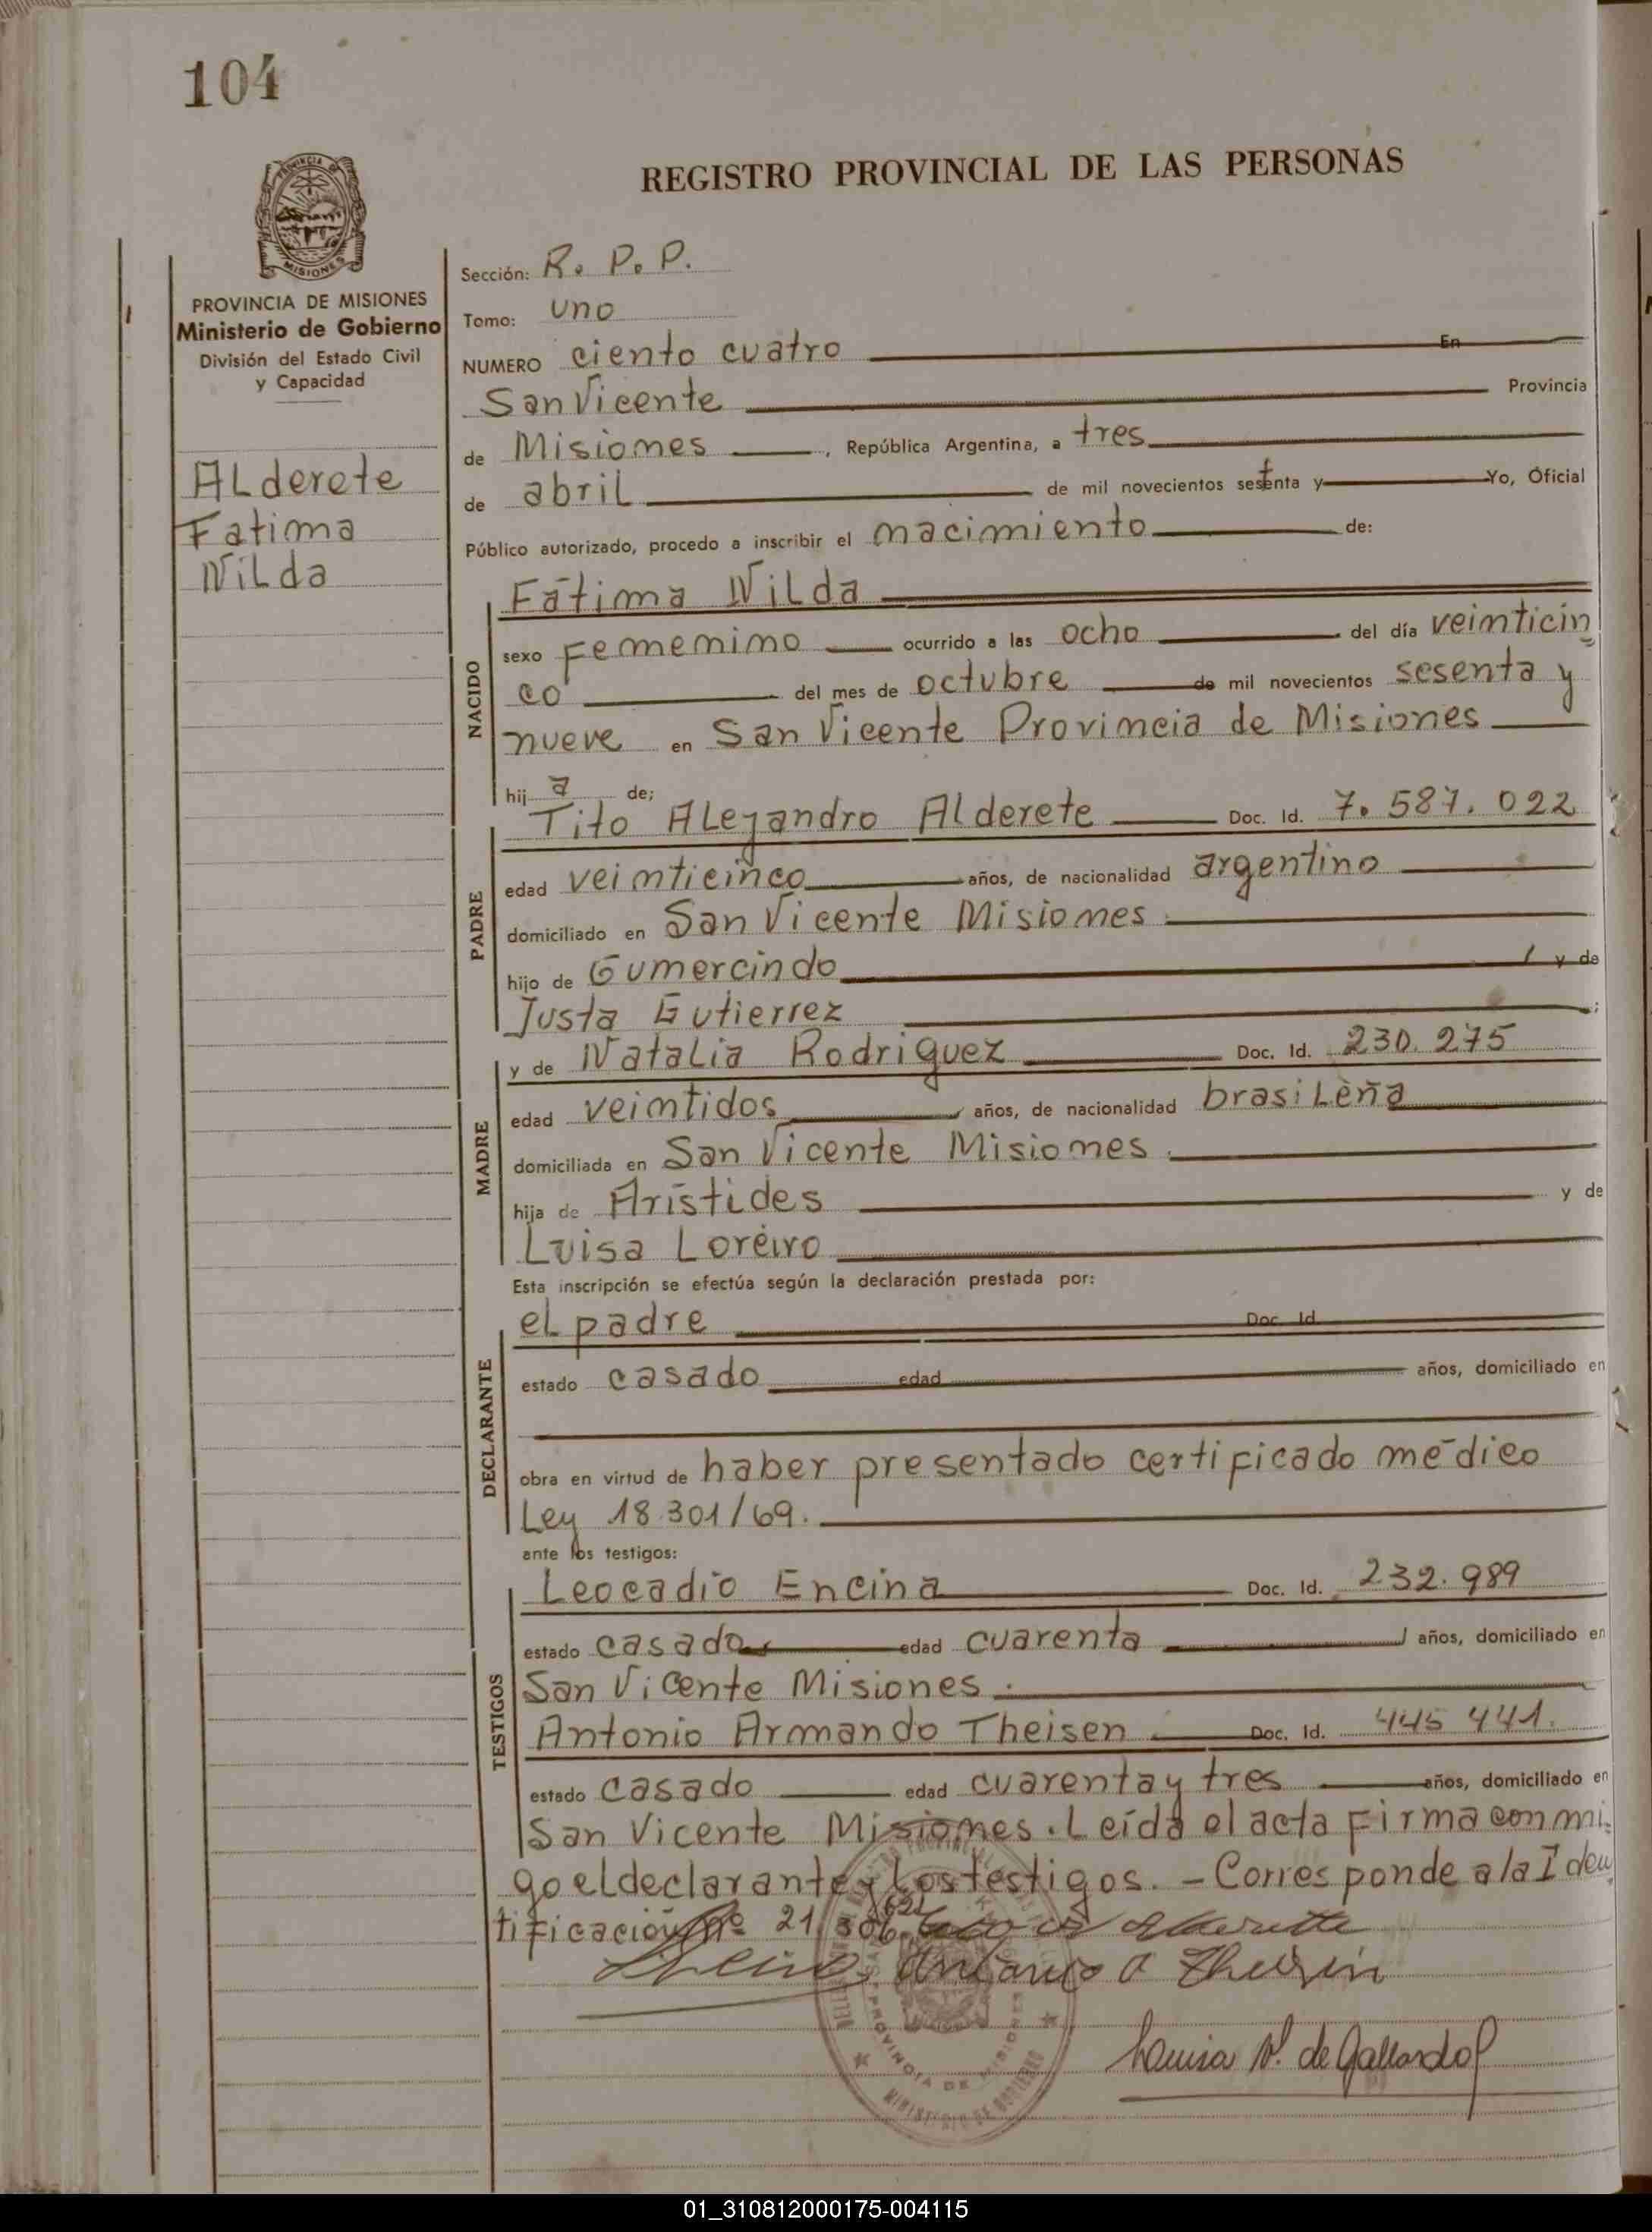 104
REGISTRO PROVINCIAL DE LAS PERSONAS
PROVINCIA DE MISIONES
Ministerio de Gobierno
División del Estado Civil
y Capacidad
ALderete
Fatima
NiLda
Sección: R. P. P.
Tomo: uno
NUMERO ciento cuatro En
San Vicente Provincia
de Misiones, República Argentina, a tres
de abril de mil novecientos setenta y Yo, Oficial
Público autorizado, procedo a inscribir el nacimiento de:
NACIDO
Fátima NiLda
sexo Femenino ocurrido a las ocho del día veinticin
co del mes de octubre de mil novecientos sesenta y
nueve en San Vicente Provincia de Misiones
hija de;
PADRE
Tito ALejandro Alderete Doc. Id. 7.587.022
edad veinticinco años, de nacionalidad argentino
domiciliado en San Vicente Misiones
hijo de Gumercindo y de
Justa Gutierrez
MADRE
y de NataLia Rodriguez Doc. Id. 230.275
edad veintidos años, de nacionalidad brasiLeña
domiciliada en San Vicente Misiones.
hija de Arístides y de
Luisa Loreiro
Esta inscripción se efectúa según la declaración prestada por:
DECLARANTE
eL padre Doc. Id.
estado casado edad años, domiciliado en
obra en virtud de haber presentado certificado médico
Ley 18.301/69.
ante los testigos:
TESTIGOS
Leocadio Encina Doc. Id. 232.989
estado casado edad cuarenta años, domiciliado en
San Vicente Misiones.
Antonio Armando Theisen Doc. Id. 445 441.
estado casado edad cuarenta y tres años, domiciliado en
San Vicente Misiones. Leída el acta firma conmi
go el declarante y los testigos. - Corresponde a la Iden
tificación Nº 21.306.621
Alderette
Antonio A Theisen
de Gallardo
PROVINCIA DE MISIONES
MINISTERIO DE GOBIERNO
01_310812000175-004115